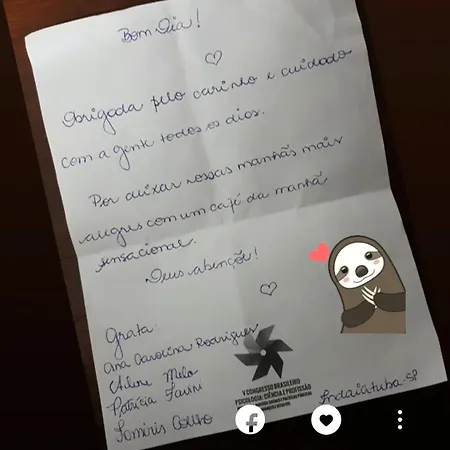 Bom Dia!
Obrigada pelo carinho e cuidado
com a gente todos os dias.
Por deixar nossas manhãs mais
alegres com um café da manhã
sensacional.
Deus abençõe!
Grata
Ana Carolina Rodrigues
Arlene Melo
Patrícia
Tamiris Coelho
V CONGRESSO BRASILEIRO
PSICOLOGIA: CIÊNCIA E PROFISSÃO
Indaiatuba-SP